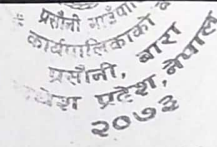 प्रसौनी गाउँपा
कार्यपालिकाको
प्रसौनी, बारा
प्रदेश, नेपाल
२०७३